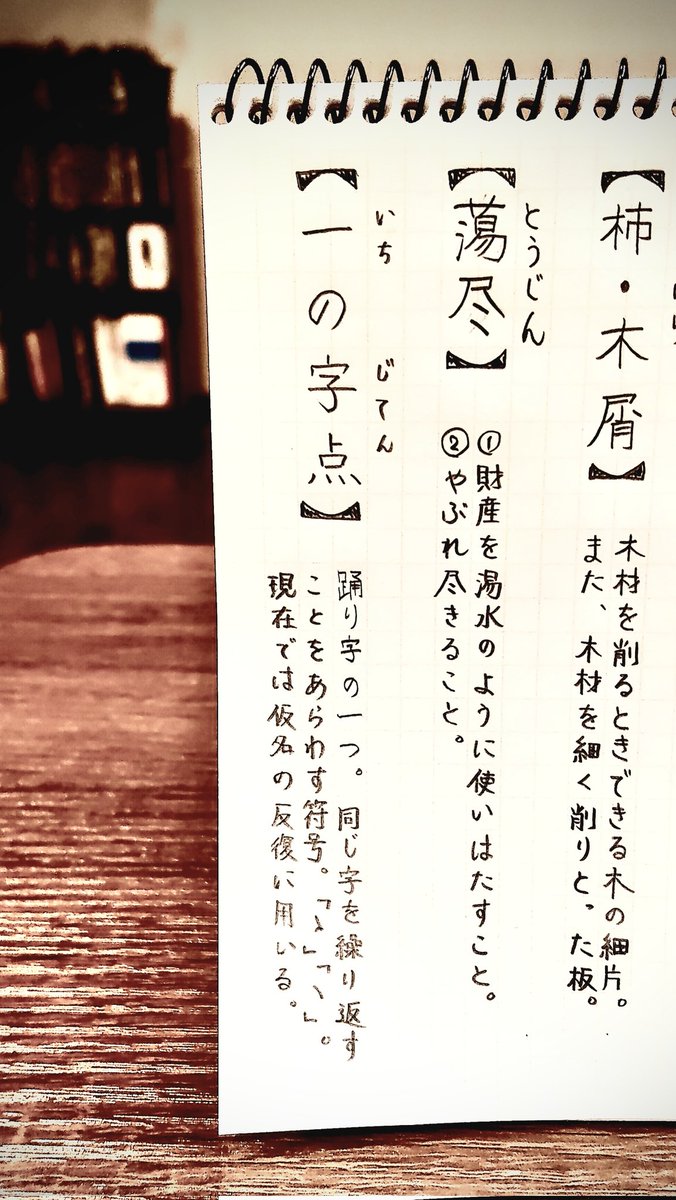 【柿・木屑】
木材を削るときできる木の細片。
また、木材を細く削りとった板。
とうじん
【蕩尽】
①財産を湯水のように使いはたすこと。
②やぶれ尽きること。
いち じてん
【一の字点】
踊り字の一つ。同じ字を繰り返す
ことをあらわす符号。「ゝ」「ヽ」。
現在では仮名の反復に用いる。